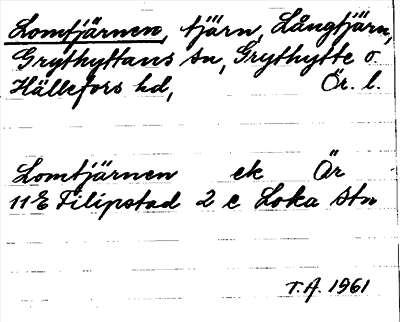 Lomtjärnen, tjärn, Långtjärn,
Grythyttans sn, Grythytte o.
Hällefors hd, Ör. l.
Lomtjärnen ek Ör
11E Filipstad 2 c Loka stn
T.A. 1961